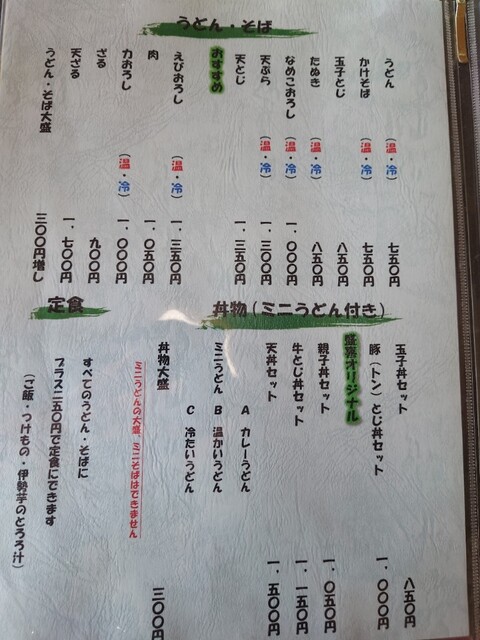 うどん・そば
うどん（温・冷） 七五〇円
かけそば（温・冷） 七五〇円
玉子とじ 八五〇円
たぬき（温・冷） 八五〇円
なめこおろし（温・冷） 一、〇〇〇円
天ぷら（温・冷） 一、三〇〇円
天とじ 一、三五〇円
おすすめ
えびおろし（温・冷） 一、三五〇円
肉 一、〇五〇円
力おろし 一、〇〇〇円
ざる 九〇〇円
天ざる 一、七〇〇円
うどん・そば大盛 三〇〇円増し
丼物（ミニうどん付き）
玉子丼セット 八五〇円
豚（トン）とじ丼セット 一、〇〇〇円
盛霧オリジナル
親子丼セット 一、〇五〇円
牛とじ丼セット 一、一五〇円
天丼セット 一、五〇〇円
A カレーうどん
ミニうどん B 温かいうどん
C 冷たいうどん
丼物大盛 三〇〇円
ミニうどんの大盛、ミニそばはできません
定食
すべてのうどん・そばに
プラス二五〇円で定食にできます
（ご飯・つけもの・伊勢芋のとろろ汁）